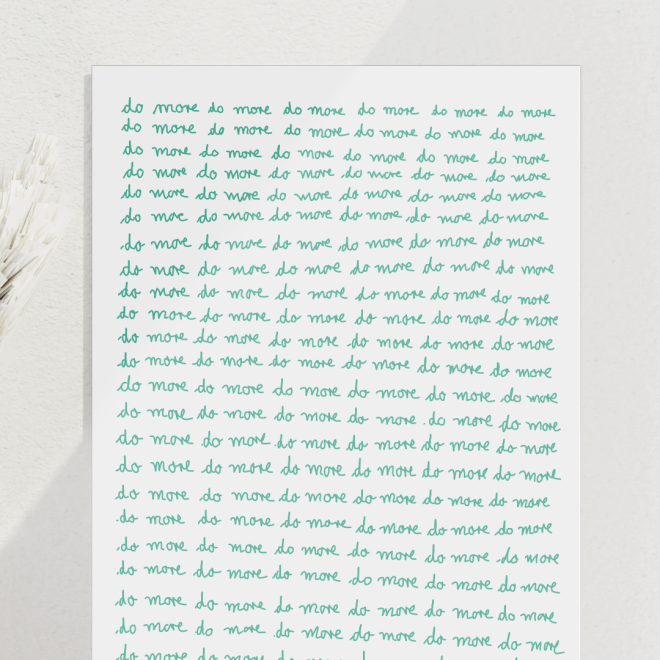 do more do more do more do more do more do more
do more do more do more do more do more do more
do more do more do more do more do more do more
do more do more do more do more do more do more
do more do more do more do more do more do more
do more do more do more do more do more do more
do more do more do more do more do more do more
do more do more do more do more do more do more
do more do more do more do more do more do more
do more do more do more do more do more do more
do more do more do more do more do more do more
do more do more do more do more do more do more
do more do more do more do more do more do more
do more do more do more do more do more do more
do more do more do more do more do more do more
do more do more do more do more do more do more
do more do more do more do more do more do more
do more do more do more do more do more do more
do more do more do more do more do more do more
do more do more do more do more do more do more
do more do more do more do more do more do more
do more do more do more do more do more do more
do more do more do more